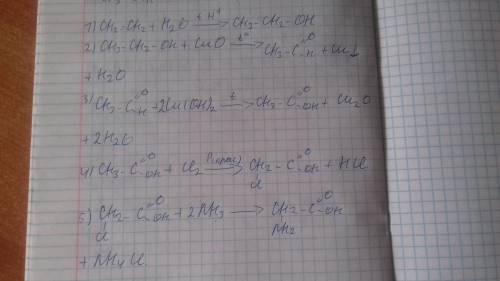 1) CH₂-CH₂ + H₂O t, H⁺→ CH₃-CH₂-OH
2) CH₃-CH₂-OH + CuO t°→ CH₃-C=O-H + Cu↓
+ H₂O
3) CH₃-C=O-H + 2Cu(OH)₂ t→ CH₃-C=O-OH + Cu₂O
+ 2H₂O
4) CH₃-C=O-OH + Cl₂ P(крас)→ CH₂-C=O-OH + HCl
Cl
5) CH₂-C=O-OH + 2NH₃ → CH₂-C=O-OH
Cl NH₂
+ NH₄Cl.